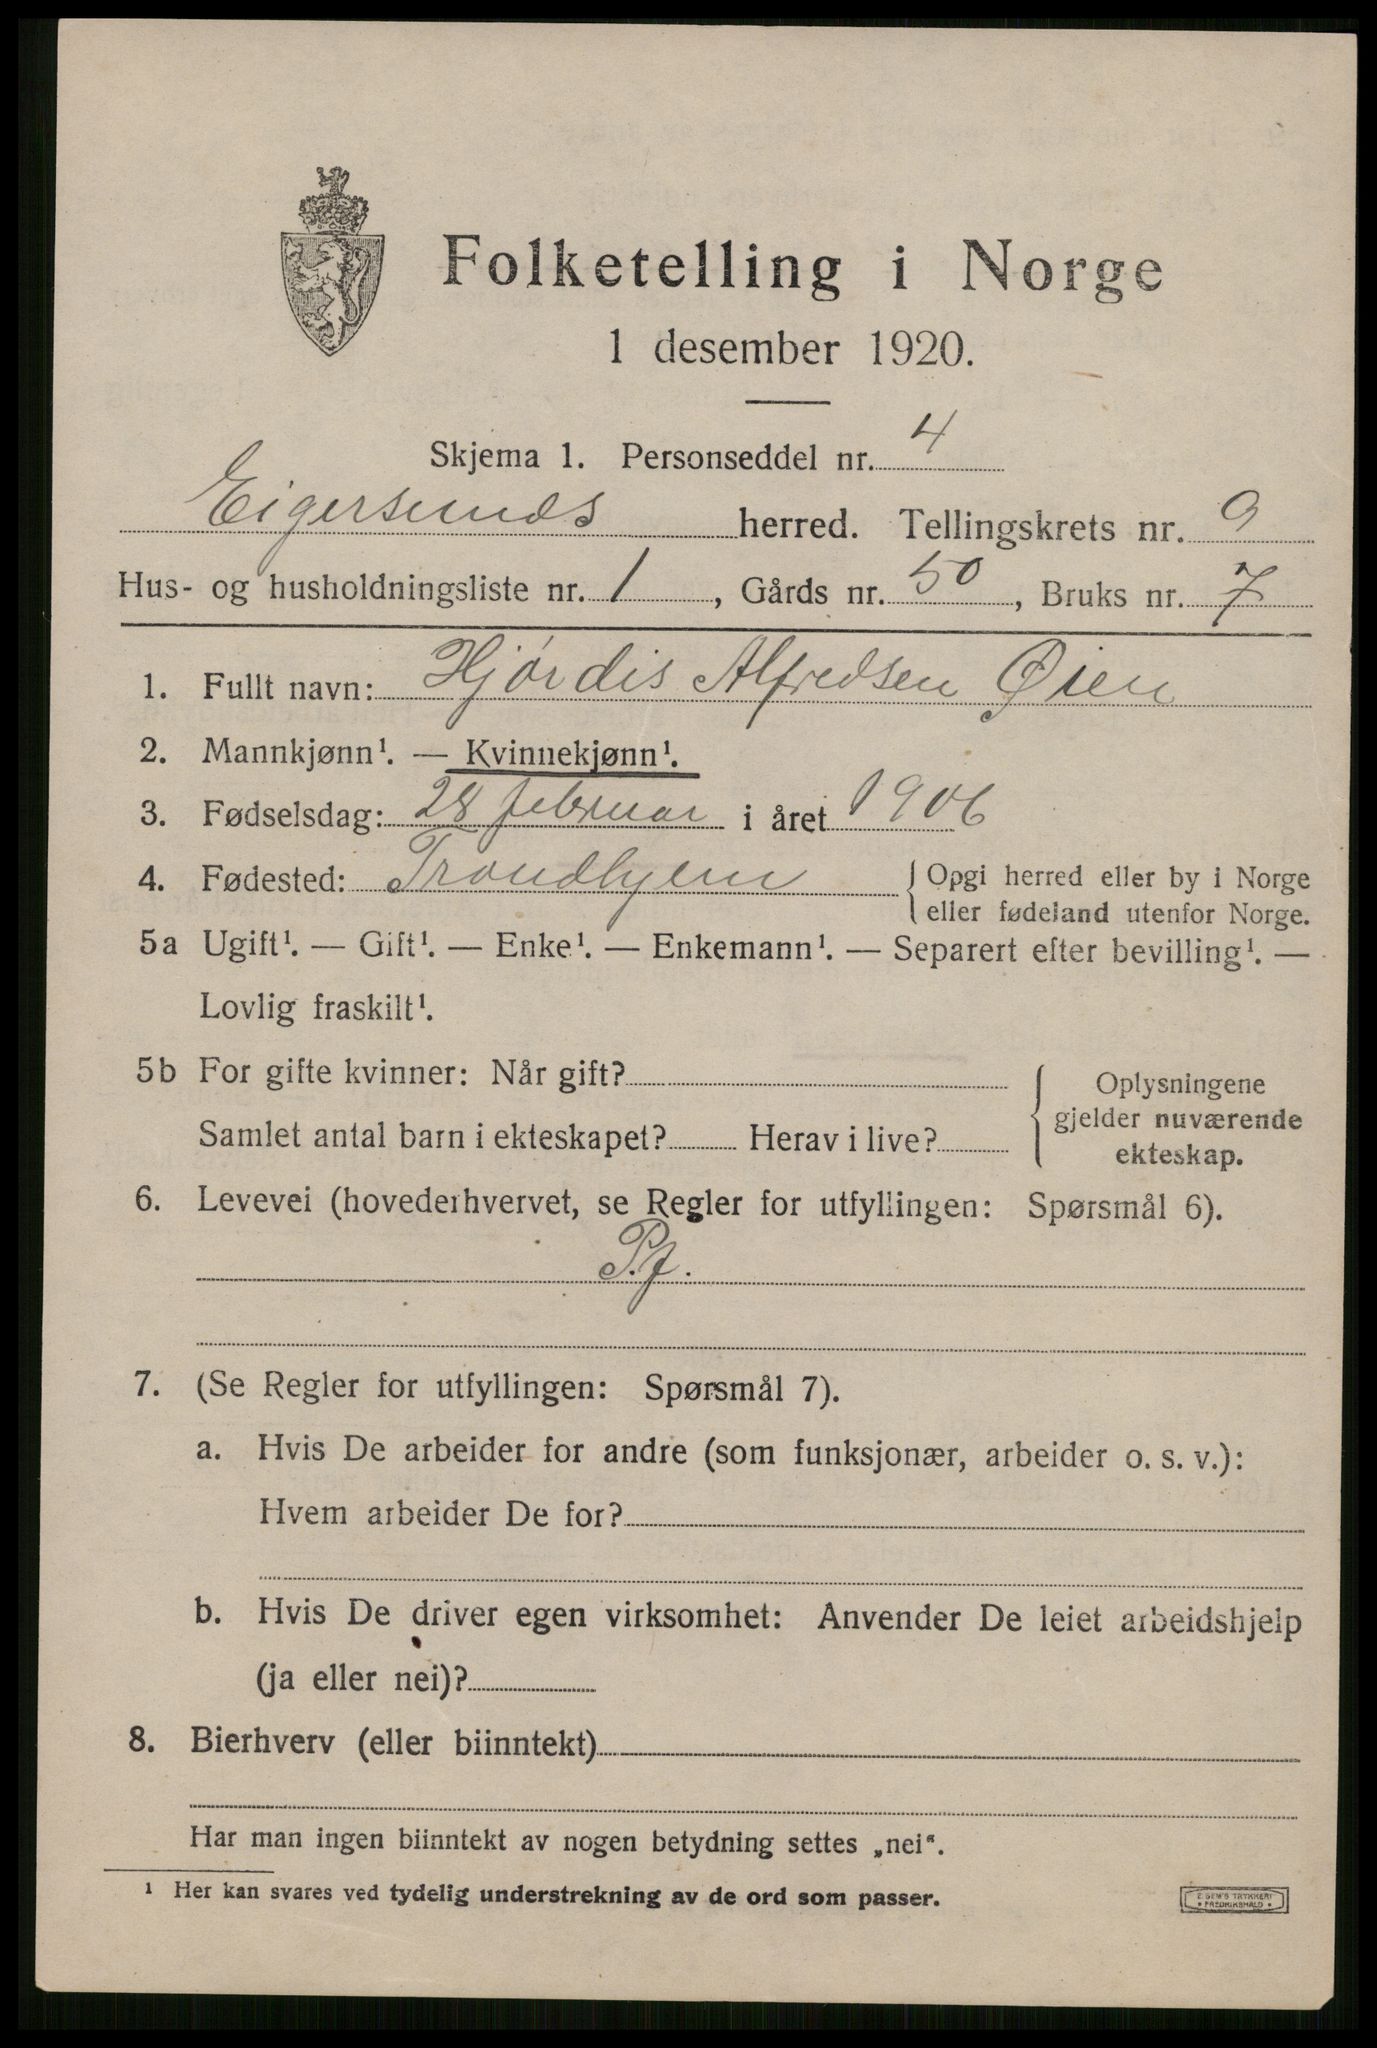 Folketelling i Norge
1 desember 1920.
Skjema 1. Personseddel nr. 4
Eigersunds herred. Tellingskrets nr. 9
Hus- og husholdningsliste nr. 1, Gårds nr. 50, Bruks nr. 7
1. Fullt navn: Hjørdis Alfredsen Øien
2. Mannkjønn¹. — Kvinnekjønn¹.
3. Fødselsdag: 28 februar i året 1906
4. Fødested: Trondhjem { Opgi herred eller by i Norge
eller fødeland utenfor Norge.
5a Ugift¹. — Gift¹. — Enke¹. — Enkemann¹. — Separert efter bevilling¹. —
Lovlig fraskilt¹.
5b For gifte kvinner: Når gift? { Oplysningene
gjelder nuværende
Samlet antal barn i ekteskapet? Herav i live?
ekteskap.
6. Levevei (hovederhvervet, se Regler for utfyllingen: Spørsmål 6).
P.f.
7. (Se Regler for utfyllingen: Spørsmål 7).
a. Hvis De arbeider for andre (som funksjonær, arbeider o. s. v.):
Hvem arbeider De for?
b. Hvis De driver egen virksomhet: Anvender De leiet arbeidshjelp
(ja eller nei)?
8. Bierhverv (eller biinntekt)
Har man ingen biinntekt av nogen betydning settes „nei“.
¹ Her kan svares ved tydelig understrekning av de ord som passer.
E. SEM'S TRYKKERI
* FREDRIKSHALD *